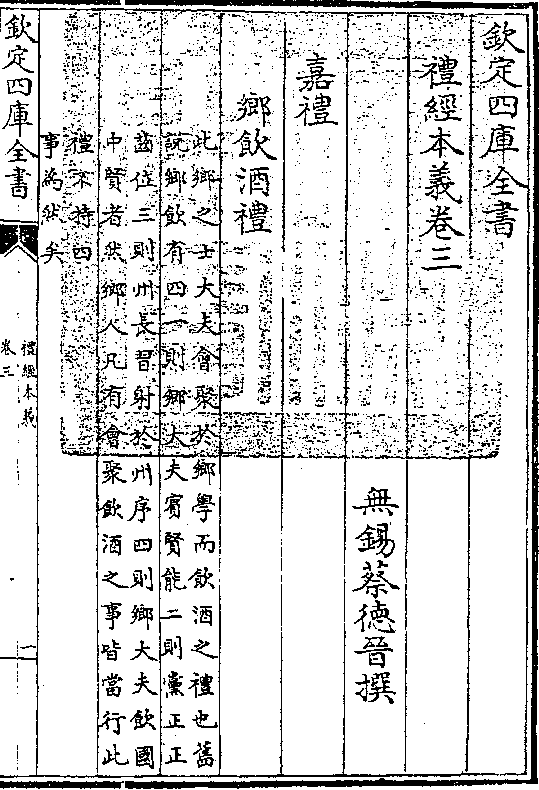 欽定四庫全書
禮經本義卷三
無錫蔡德晉撰
嘉禮
鄉飲酒禮
此鄉之士大夫會聚於鄉學而飲酒之禮也舊
說鄉飲有四一則鄉大夫賓賢能二則黨正正
齒位三則州長習射於州序四則鄉大夫飲國
中賢者然鄉人凡有會聚飲酒之事皆當行此
禮不特四
事為然矣
欽定四庫全書
禮經本義
卷三
一